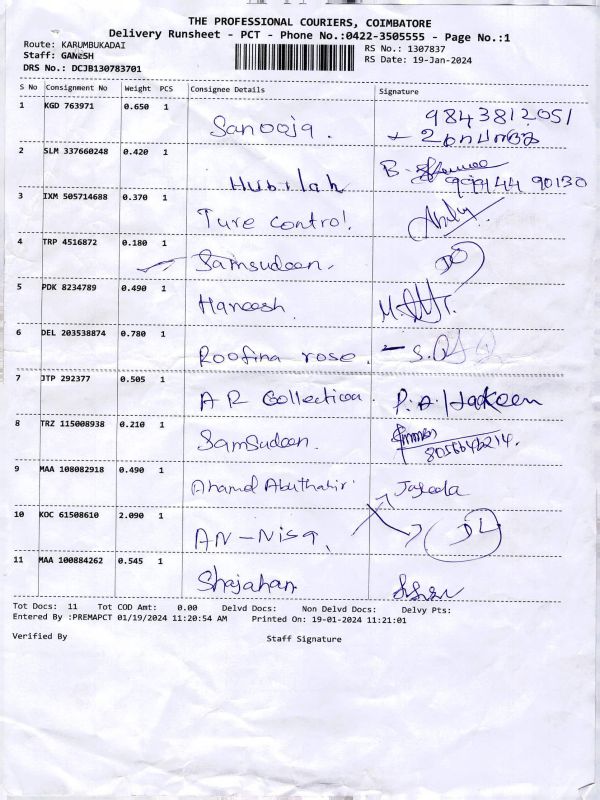 THE PROFESSIONAL COURIERS, COIMBATORE
Delivery Runsheet - PCT - Phone No.:0422-3505555 - Page No.:1
Route: KARUMBUKADAI RS No.: 1307837
Staff: GANESH RS Date: 19-Jan-2024
DRS No.: DCJB130783701
S No Consignment No Weight PCS Consignee Details Signature
1 KGD 763971 0.650 1 Sanooja. 9843812051
2 SLM 337660248 0.420 1 Hubilah B. 999144 90130
3 IXM 505714688 0.370 1 Ture control.
4 TRP 4516872 0.180 1 Samsudeen.
5 PDK 8234789 0.490 1 Haneesh.
6 DEL 203538874 0.780 1 Roofina rose.
7 JTP 292377 0.505 1 A R Collection. P.A.
8 TRZ 115008938 0.210 1 Samsudeen.
9 MAA 108082918 0.490 1 Ahamd Abuthahir
10 KOC 61508610 2.090 1 AN-NISA
11 MAA 100884262 0.545 1 Shajahan
Tot Docs: 11 Tot COD Amt: 0.00 Delvd Docs: Non Delvd Docs: Delvy Pts:
Entered By :PREMAPCT 01/19/2024 11:20:54 AM Printed On: 19-01-2024 11:21:01
Verified By Staff Signature